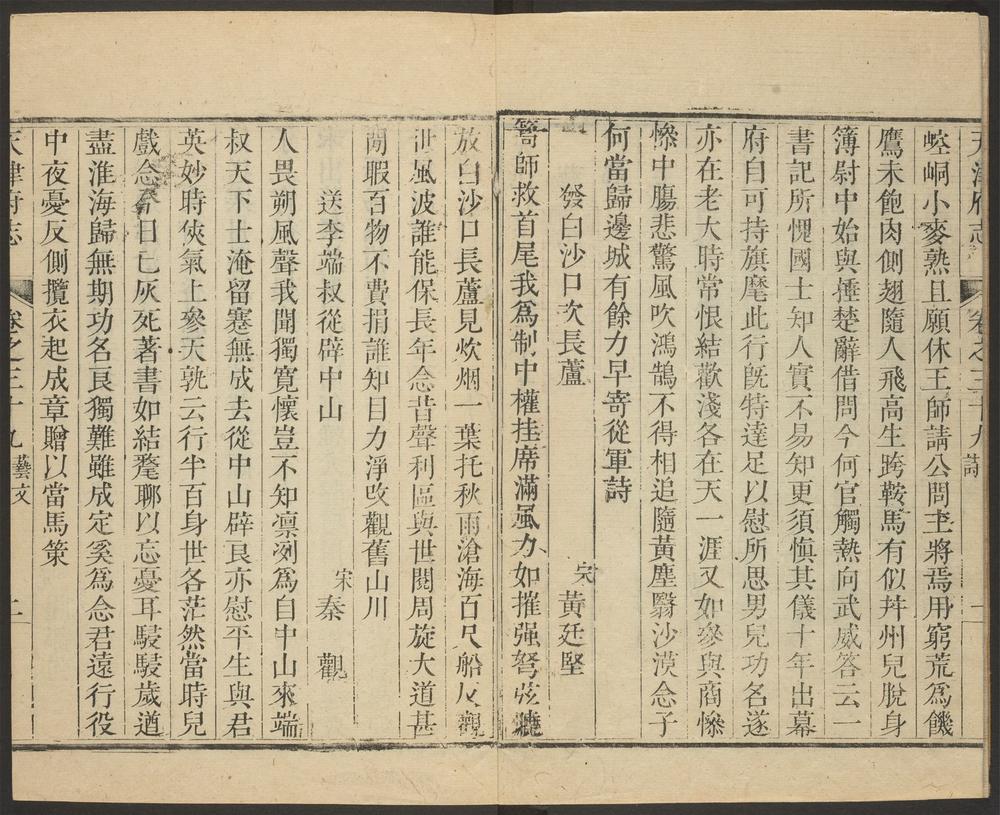 天津府志 卷之三十九 詩 一
崆峒小麥熟且願休王師請公問主將焉用窮荒為饑
鷹未飽肉側翅隨人飛高生跨鞍馬有似幷州兒脫身
簿尉中始與捶楚辭借問今何官觸熱向武威答云一
書記所愧國士知人實不易知更須慎其儀十年出幕
府自可持旗麾此行旣特達足以慰所思男兒功名遂
亦在老大時常恨結歡淺各在天一涯又如參與商慘
慘中腸悲驚風吹鴻鵠不得相追隨黃塵翳沙漠念子
何當歸邊城有餘力早寄從軍詩
發白沙口次長蘆 宋 黃廷堅
篙師救首尾我為制中權挂席滿風力如摧强弩弦曉
放白沙口長蘆見炊烟一葉托秋雨滄海百尺船反觀
世風波誰能保長年念昔聲利區與世閱周旋大道甚
閒暇百物不費捐誰知目力淨改觀舊山川
送李端叔從辟中山 宋 秦 觀
人畏朔風聲我聞獨寬懷豈不知凛冽為自中山來端
叔天下士淹留蹇無成去從中山辟良亦慰平生與君
英妙時俠氣上參天孰云行半百身世各茫然當時兒
戲念今日已灰死著書如結氂聊以忘憂耳駸駸歲遒
盡淮海歸無期功名良獨難雖成定奚為念君遠行役
中夜憂反側攬衣起成章贈以當馬策
天津府志 卷之三十九 藝文 二